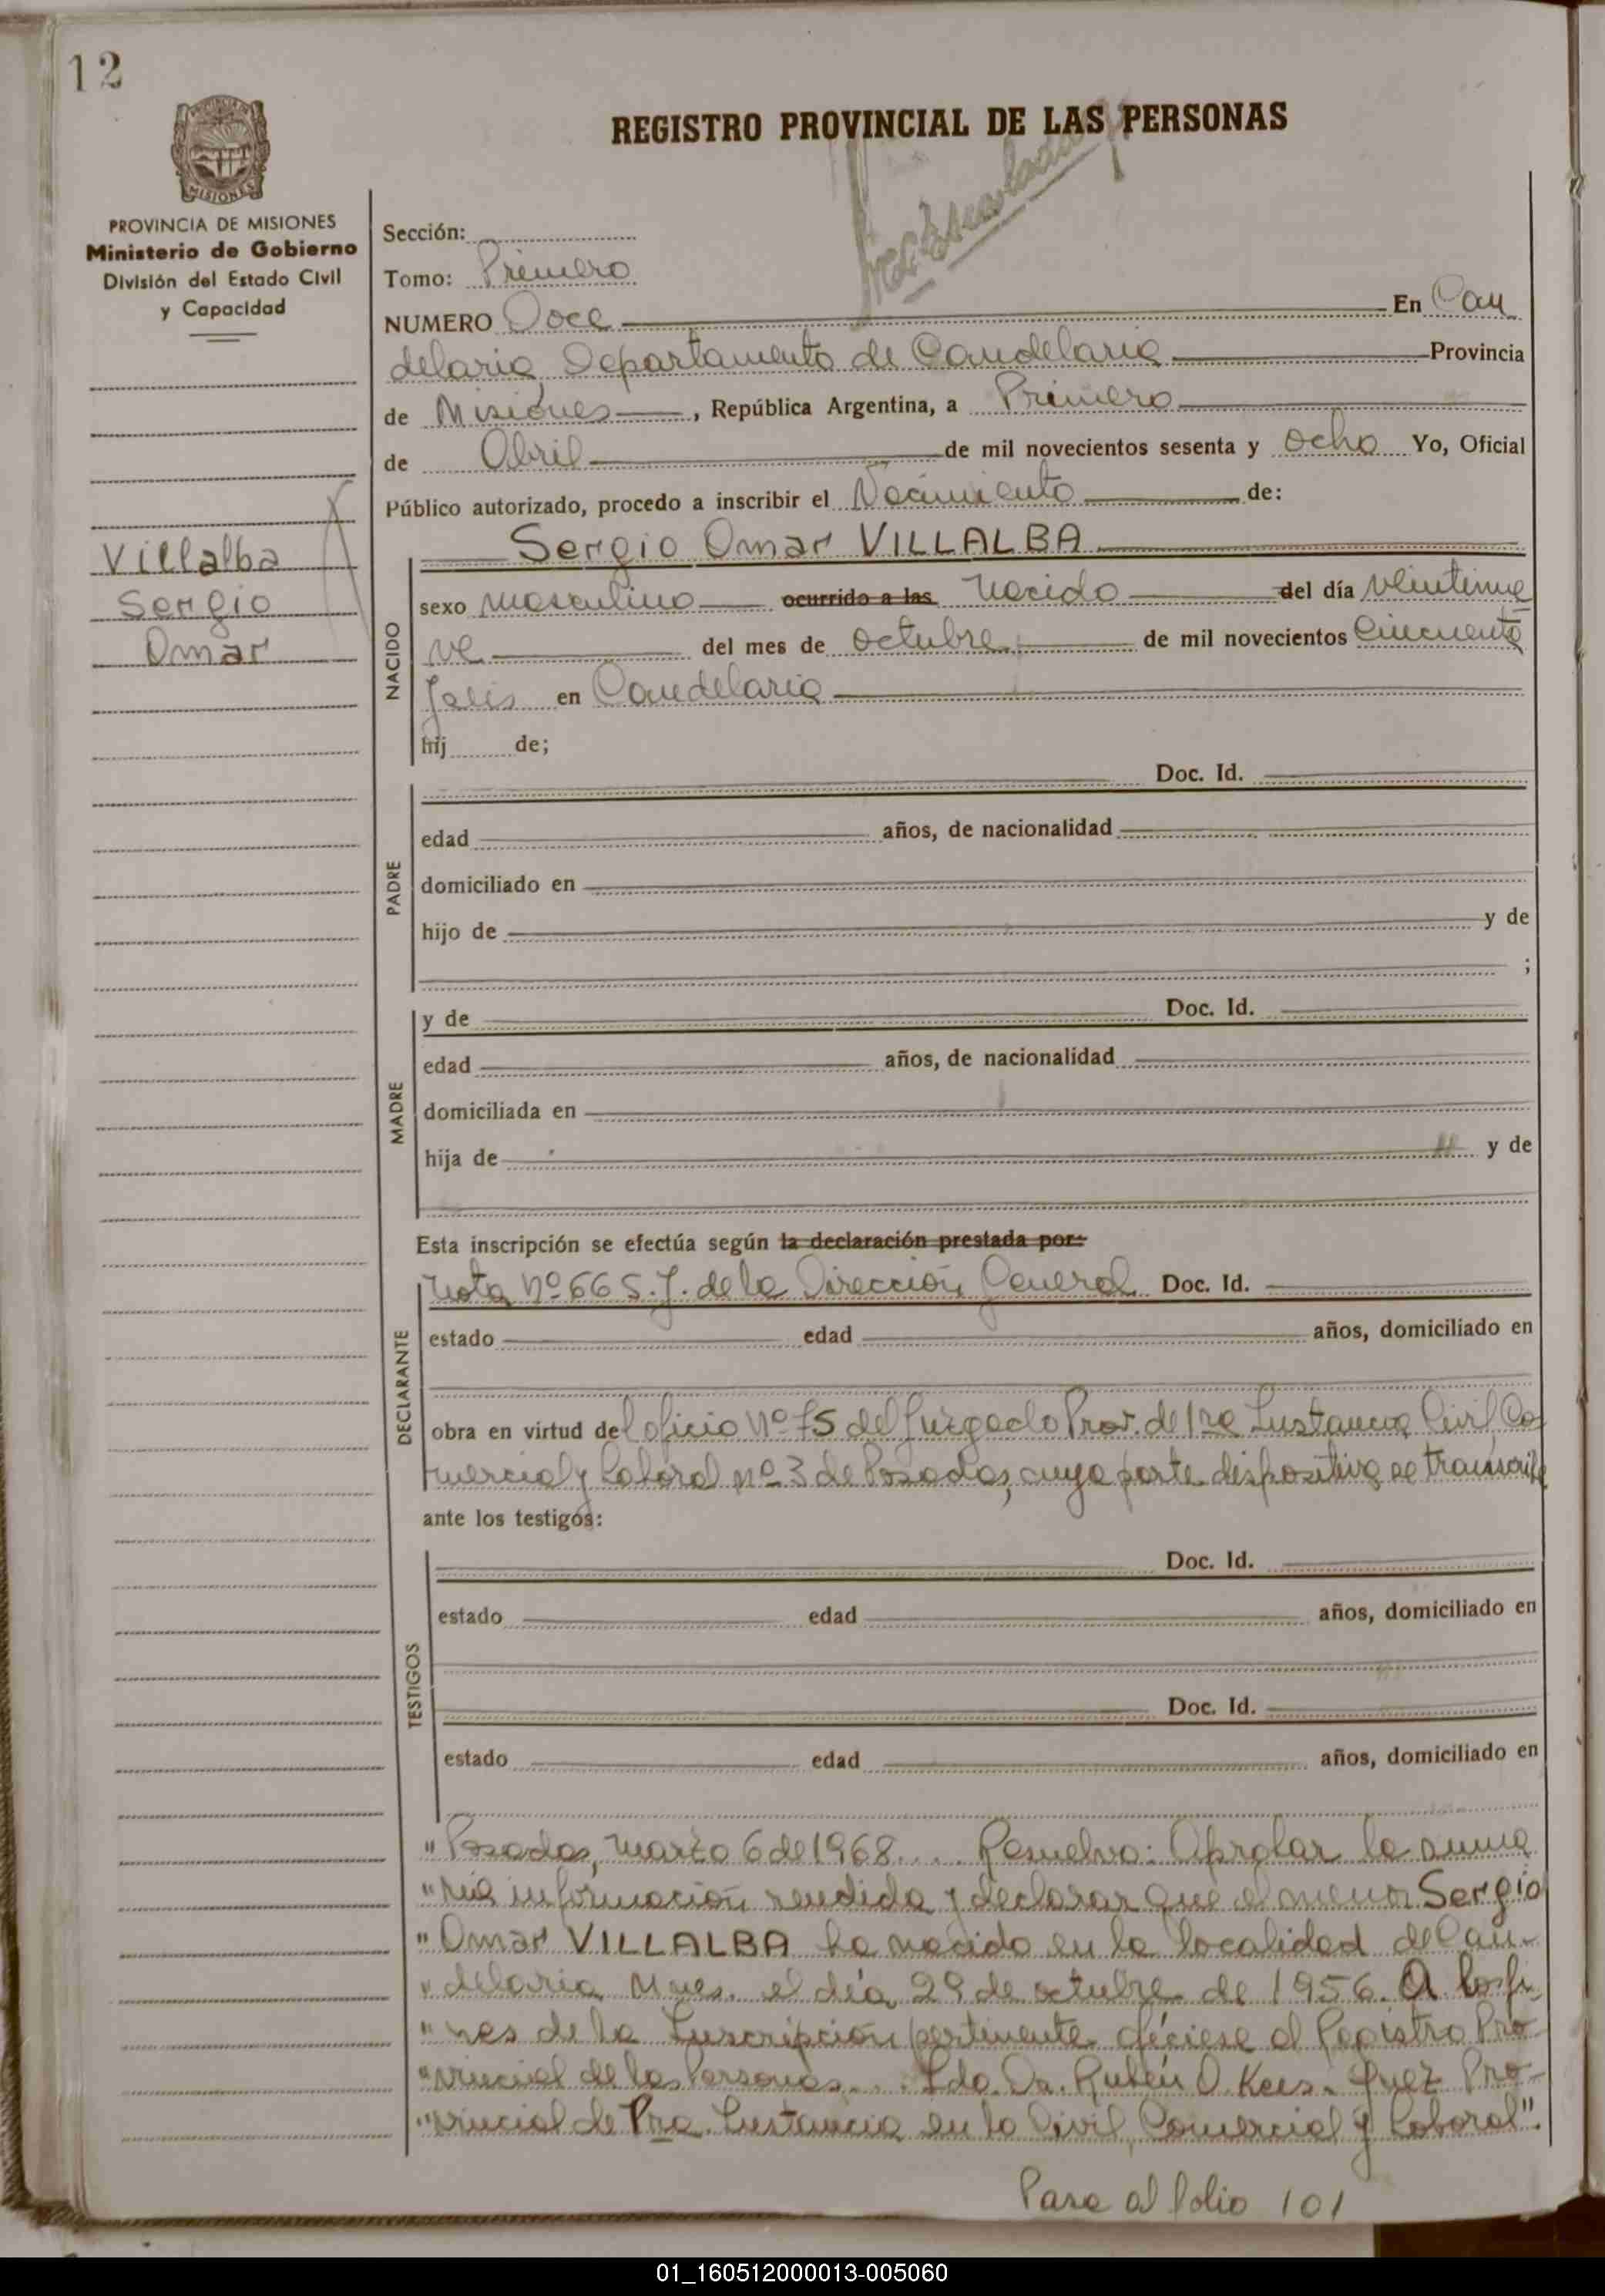 12
REGISTRO PROVINCIAL DE LAS PERSONAS
MISIONES
PROVINCIA DE MISIONES
Ministerio de Gobierno
División del Estado Civil
y Capacidad
Villalba
Sergio
Omar
Sección:
Tomo: Primero
NUMERO Doce En Can
delaria, Departamento de Candelaria Provincia
de Misiones, República Argentina, a Primero
de Abril de mil novecientos sesenta y ocho Yo, Oficial
Público autorizado, procedo a inscribir el Nacimiento de:
Sergio Omar VILLALBA
NACIDO
sexo masculino ocurrido a las nacido del día veintinue
ve del mes de octubre de mil novecientos cincuenta
y seis en Candelaria
hij de;
PADRE
Doc. Id.
edad años, de nacionalidad
domiciliado en
hijo de y de
;
MADRE
y de Doc. Id.
edad años, de nacionalidad
domiciliada en
hija de y de
Esta inscripción se efectúa según la declaración prestada por:
DECLARANTE
Nota Nº 66 S.J. de la Dirección General Doc. Id.
estado edad años, domiciliado en
obra en virtud del oficio Nº 75 del Juzgado Prov. de 1ra Instancia Civil, Co
mercial y Laboral nº 3 de Posadas, cuya parte dispositiva se transcribe
ante los testigos:
TESTIGOS
Doc. Id.
estado edad años, domiciliado en
Doc. Id.
estado edad años, domiciliado en
" Posadas, marzo 6 de 1968.... Resuelvo: Aprobar la suma
" ria información rendida y declarar que el menor Sergio
" Omar VILLALBA ha nacido en la localidad de Can-
" delaria, Mnes. el día 29 de octubre de 1956. A los fi
" nes de la Inscripción pertinente ofíciese al Registro Pro
" vincial de las Personas.... Fdo. Dr. Rubén O. Kees. Juez Pro-
" vincial de Pra. Instancia en lo Civil, Comercial y Laboral".
Pasa al folio 101
01_160512000013-005060